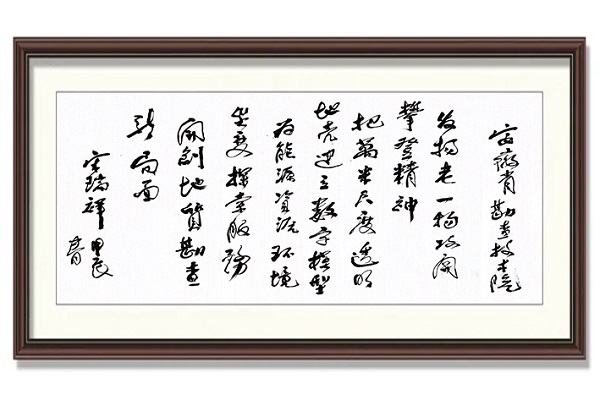 安徽省勘查技术院
发扬老一物攻关
攀登精神
把萬米尺度透明
地壳建立数字模型
为能源资源环境
探索服務
開創地質勘查
新局面
宋瑞祥
甲辰
春